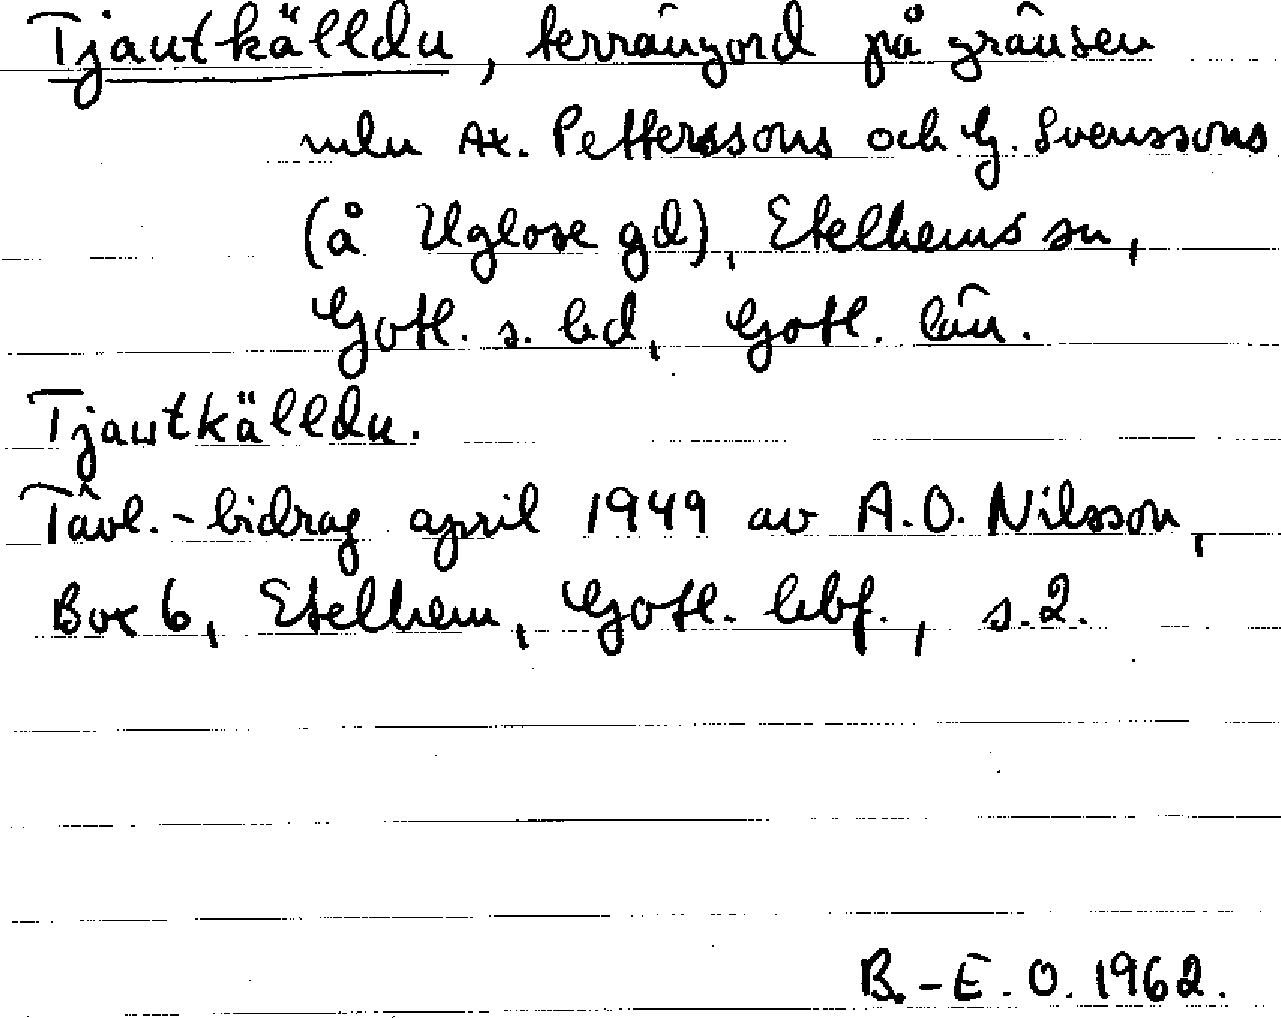 Tjautkälldu, terrängord på gränsen
mln Ax. Petterssons och G. Svenssons
(å Uglose gd), Etelhems sn,
Gotl. s. hd, Gotl. län.
Tjautkälldu.
Tävl.-bidrag april 1949 av A.O. Nilsson,
Box 6, Etelhem, Gotl. hbf., s.2.
B.-E.O. 1962.